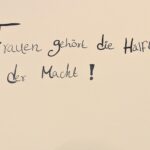 Frauen gehört die Hälft
der Macht !